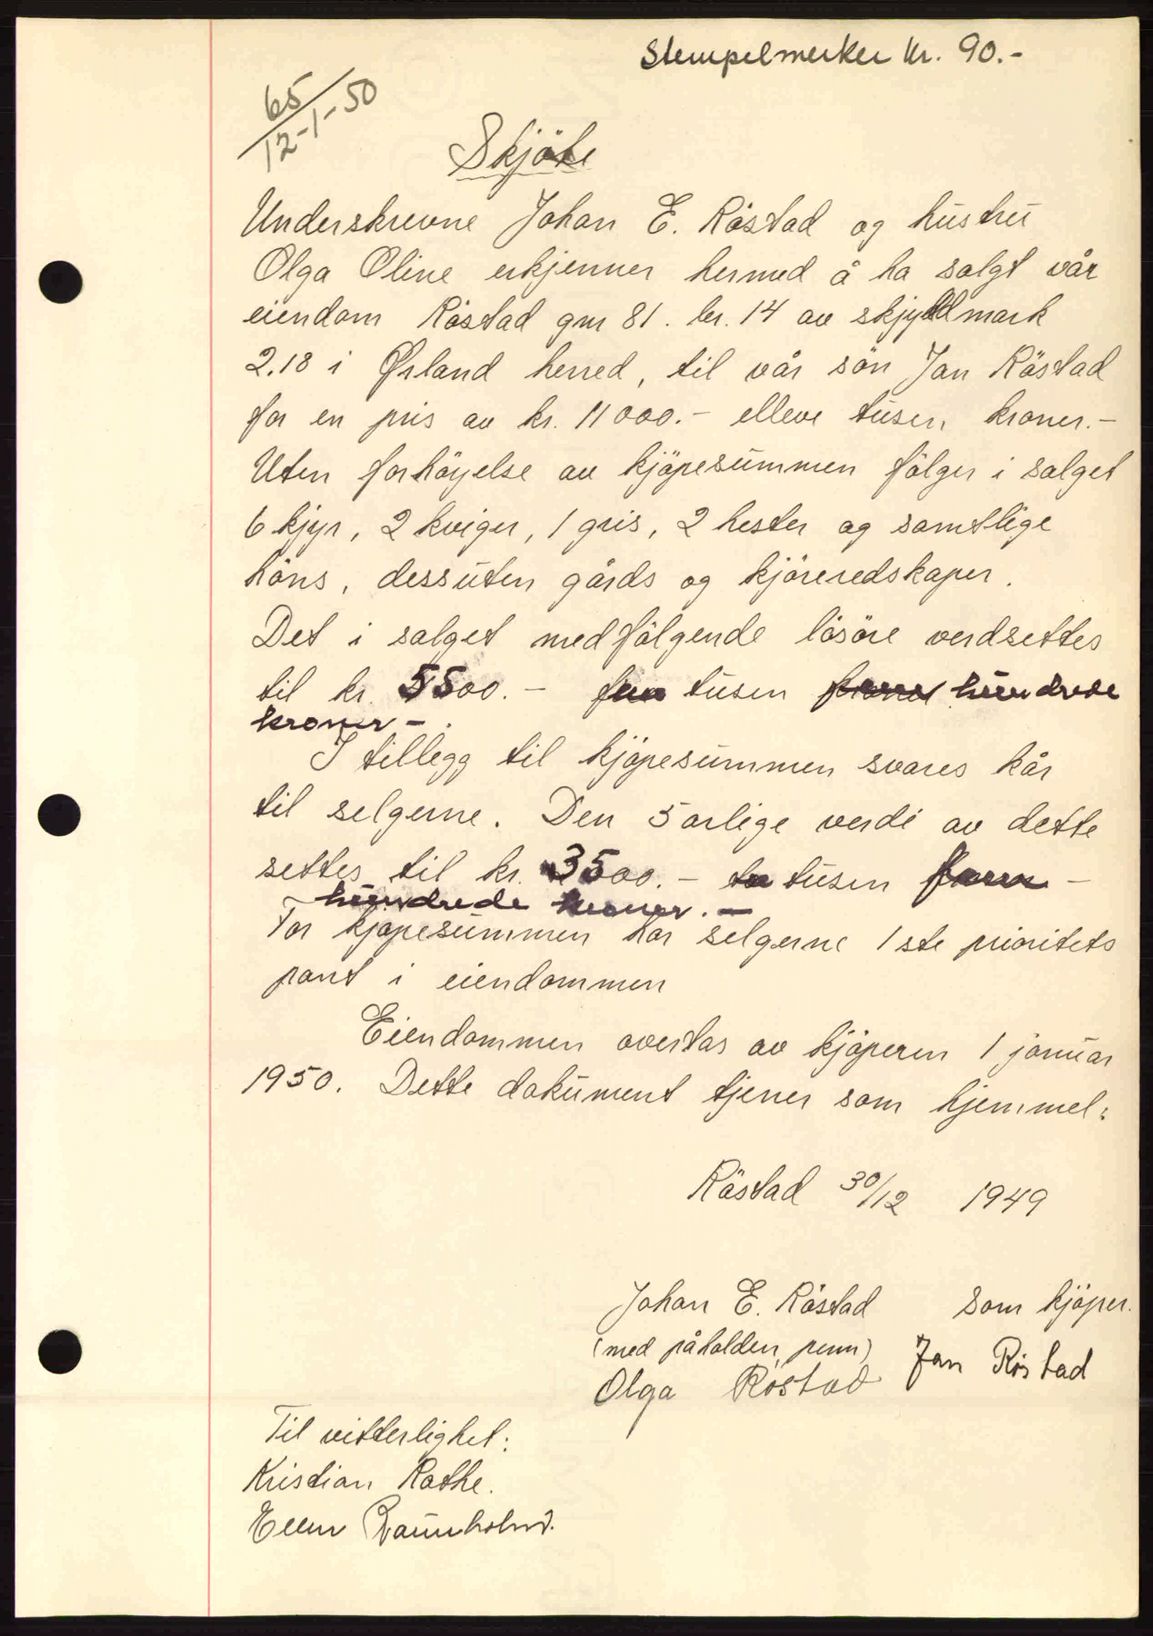 Stempelmerker kr. 90.-
65
12-1-50
Skjöte
Underskrevne Johan E. Röstad og hustru
Olga Oline erkjenner hermed å ha solgt vår
eiendom Röstad gnr 81. br. 14 av skjyldmark
2.18 i Ørland herred, til vår sön Jan Röstad
for en pris av kr. 11000.- elleve tusen kroner.-
Uten forhöyelse av kjöpesummen fölger i salget
6 kjyr, 2 kviger, 1 gris, 2 hester og samtlige
höns, dessuten gårds og kjöreredskaper.
Det i salget medfölgende lösöre verdsettes
til kr. 5500.- fem tusen hundrede
kroner -.
I tillegg til kjöpesummen svares kår
til selgerne. Den 5 årlige verdi av dette
settes til kr. 3500.- tusen
hundrede kroner.-
For kjöpesummen har selgerne 1ste prioritets
pant i eiendommen
Eiendommen overtas av kjöperen 1 januar
1950. Dette dokument tjener som hjemmel:
Röstad 30/12 1949
Johan E. Röstad som kjöper.
(med påholden penn) Jan Röstad
Olga Röstad
Til vitterlighet:
Kristian Rathe.
Ellen